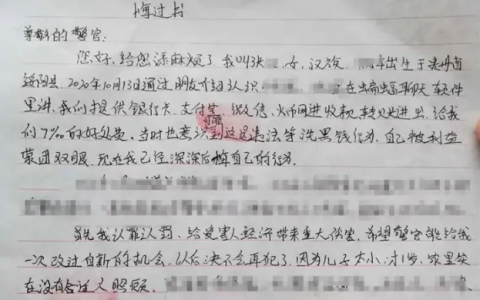 悔过书
尊敬的警官:
您好,给您添麻烦了,我叫 女,汉族, 出生于贵州省
2020年10月13日通过朋友介绍认识 在蝙蝠聊天软件
里讲,我们提供银行卡、支付宝、微信、火币网进收款,转 进出,给我
们7‰的好处费,当时也意识到可能这是违法等洗黑钱行为,自己被利益
蒙困双眼,现在我已经深深后悔自己的行为.
首先我认罪认罚、给受害人经济带来重大伤害,希望警官能给我
一次改过自新的机会,以后决不会再犯了,因为儿子太小,才1岁,家里实
在没有合适人照顾.